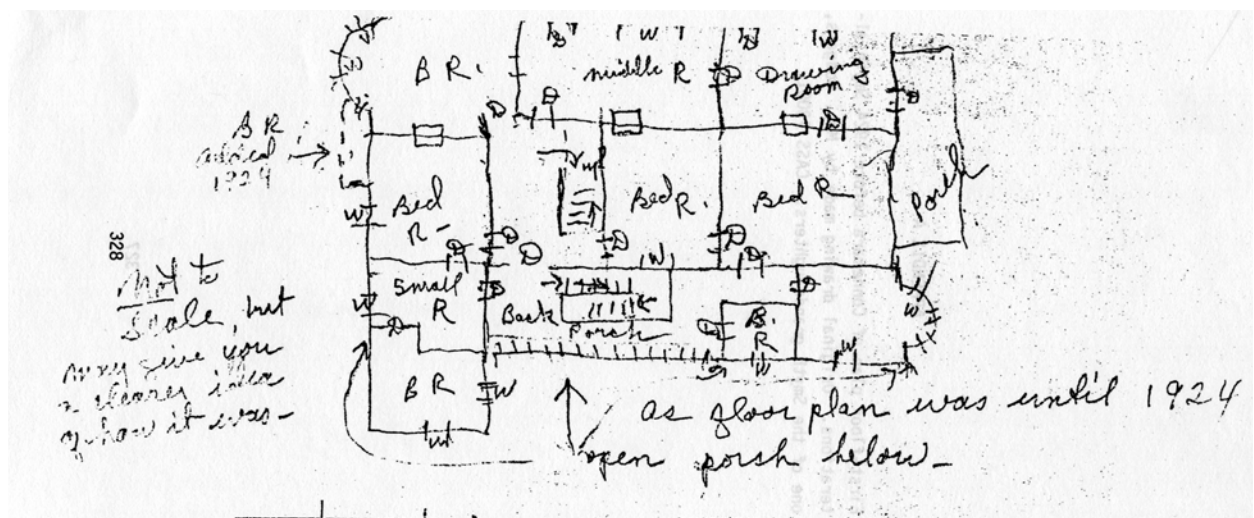 D W D W
B R. middle R D Drawing Room
D D D
B R
added
1924
W
Bed
R-
Bed
R.
Bed R
Porch
D D D D D
W
328
Not to
scale, but
may give you
a clearer idea
of how it was-
Small
R
W
D
D
Back
Porsh
B.
R
D
D
W
W
W
B R
W
W
as floor plan was until 1924
open porsh below-